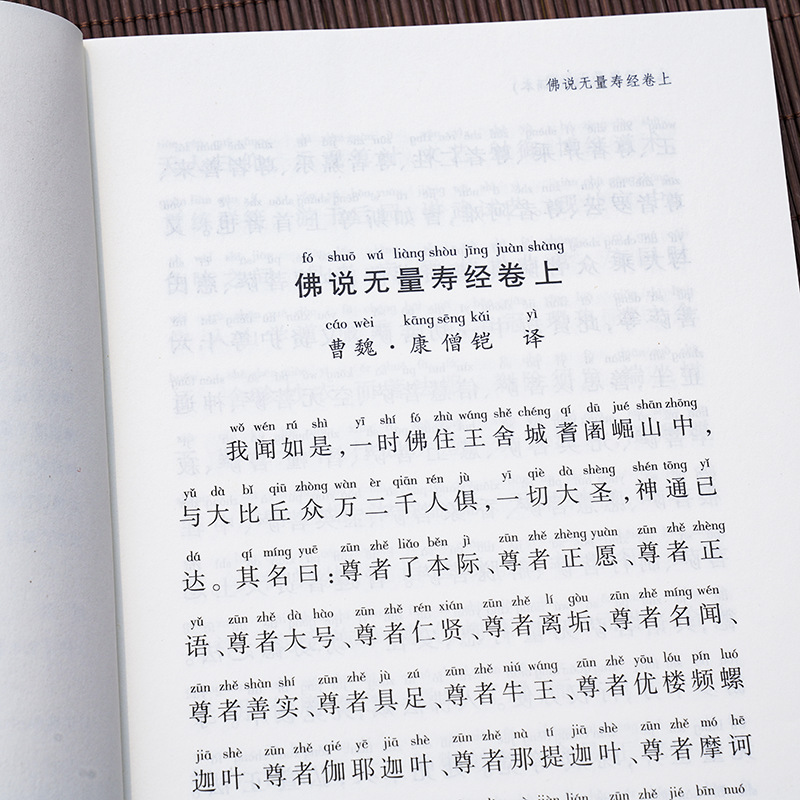 佛说无量寿经卷上
fó shuō wú liàng shòu jīng juàn shàng
佛说无量寿经卷上
cáo wèi kāng sēng kǎi yì
曹魏·康僧铠 译
wǒ wén rú shì yī shí fó zhù wáng shě chéng qí dū jué shān zhōng
我闻如是,一时佛住王舍城耆阇崛山中,
yǔ dà bǐ qiū zhòng wàn èr qiān rén jù yī qiè dà shèng shén tōng yǐ
与大比丘众万二千人俱,一切大圣,神通已
dá qí míng yuē zūn zhě liǎo běn jì zūn zhě zhèng yuàn zūn zhě zhèng
达。其名曰:尊者了本际、尊者正愿、尊者正
yǔ zūn zhě dà hào zūn zhě rén xián zūn zhě lí gòu zūn zhě míng wén
语、尊者大号、尊者仁贤、尊者离垢、尊者名闻、
zūn zhě shàn shí zūn zhě jù zú zūn zhě niú wáng zūn zhě yōu lóu pín luó
尊者善实、尊者具足、尊者牛王、尊者优楼频螺
jiā shè zūn zhě qié yē jiā shè zūn zhě nà tí jiā shè zūn zhě mó hē
迦叶、尊者伽耶迦叶、尊者那提迦叶、尊者摩诃
zūn zhě jié bīn nuó